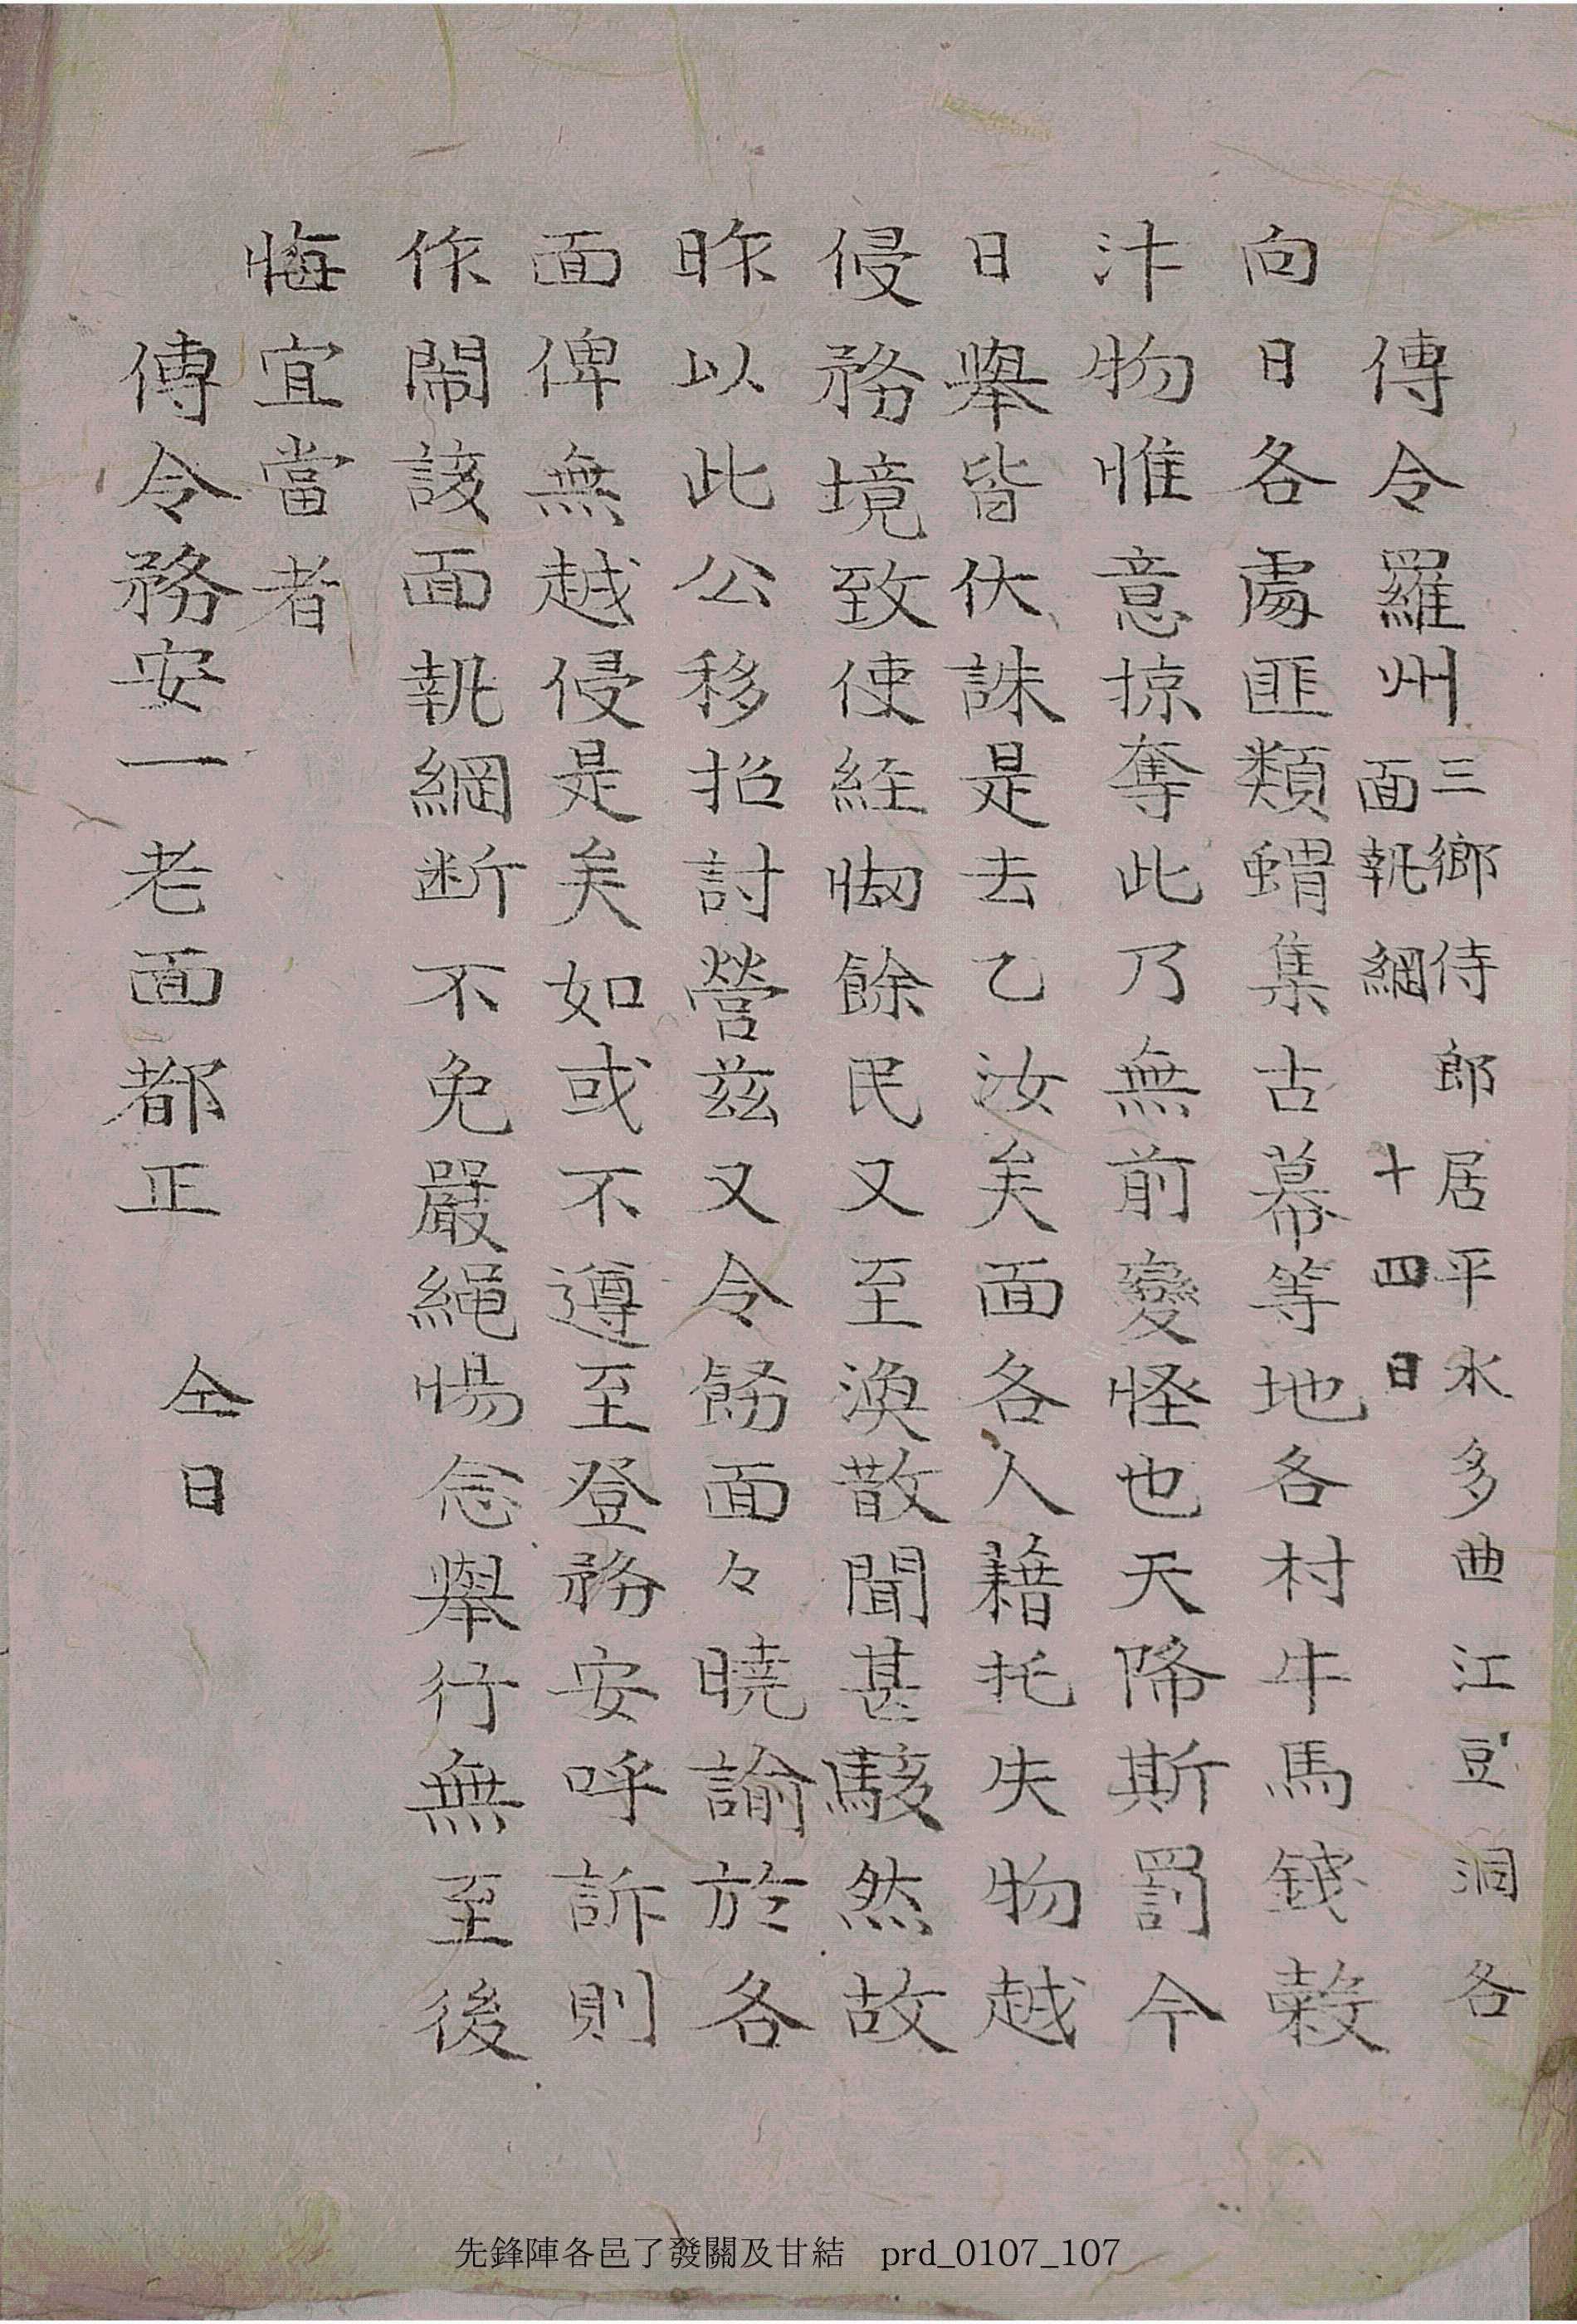 傳令羅州三鄉侍郎居平水多曲江豆洞各面執綱 十四日
向日各處匪類蝟集古幕等地各村牛馬錢穀
汴物惟意掠奪此乃無前變怪也天降斯罰今
日擧皆伏誅是去乙汝矣面各人藉托失物越
侵務境致使經㥘餘民又至渙散聞甚駭然故
昨以此公移招討營玆又令飭面々曉諭於各
面俾無越侵是矣如或不遵至登務安呼訴則
作鬧該面執綱斷不免嚴繩惕念擧行無至後
悔宜當者
傳令務安一老面都正 仝日
先鋒陣各邑了發關及甘結 prd_0107_107